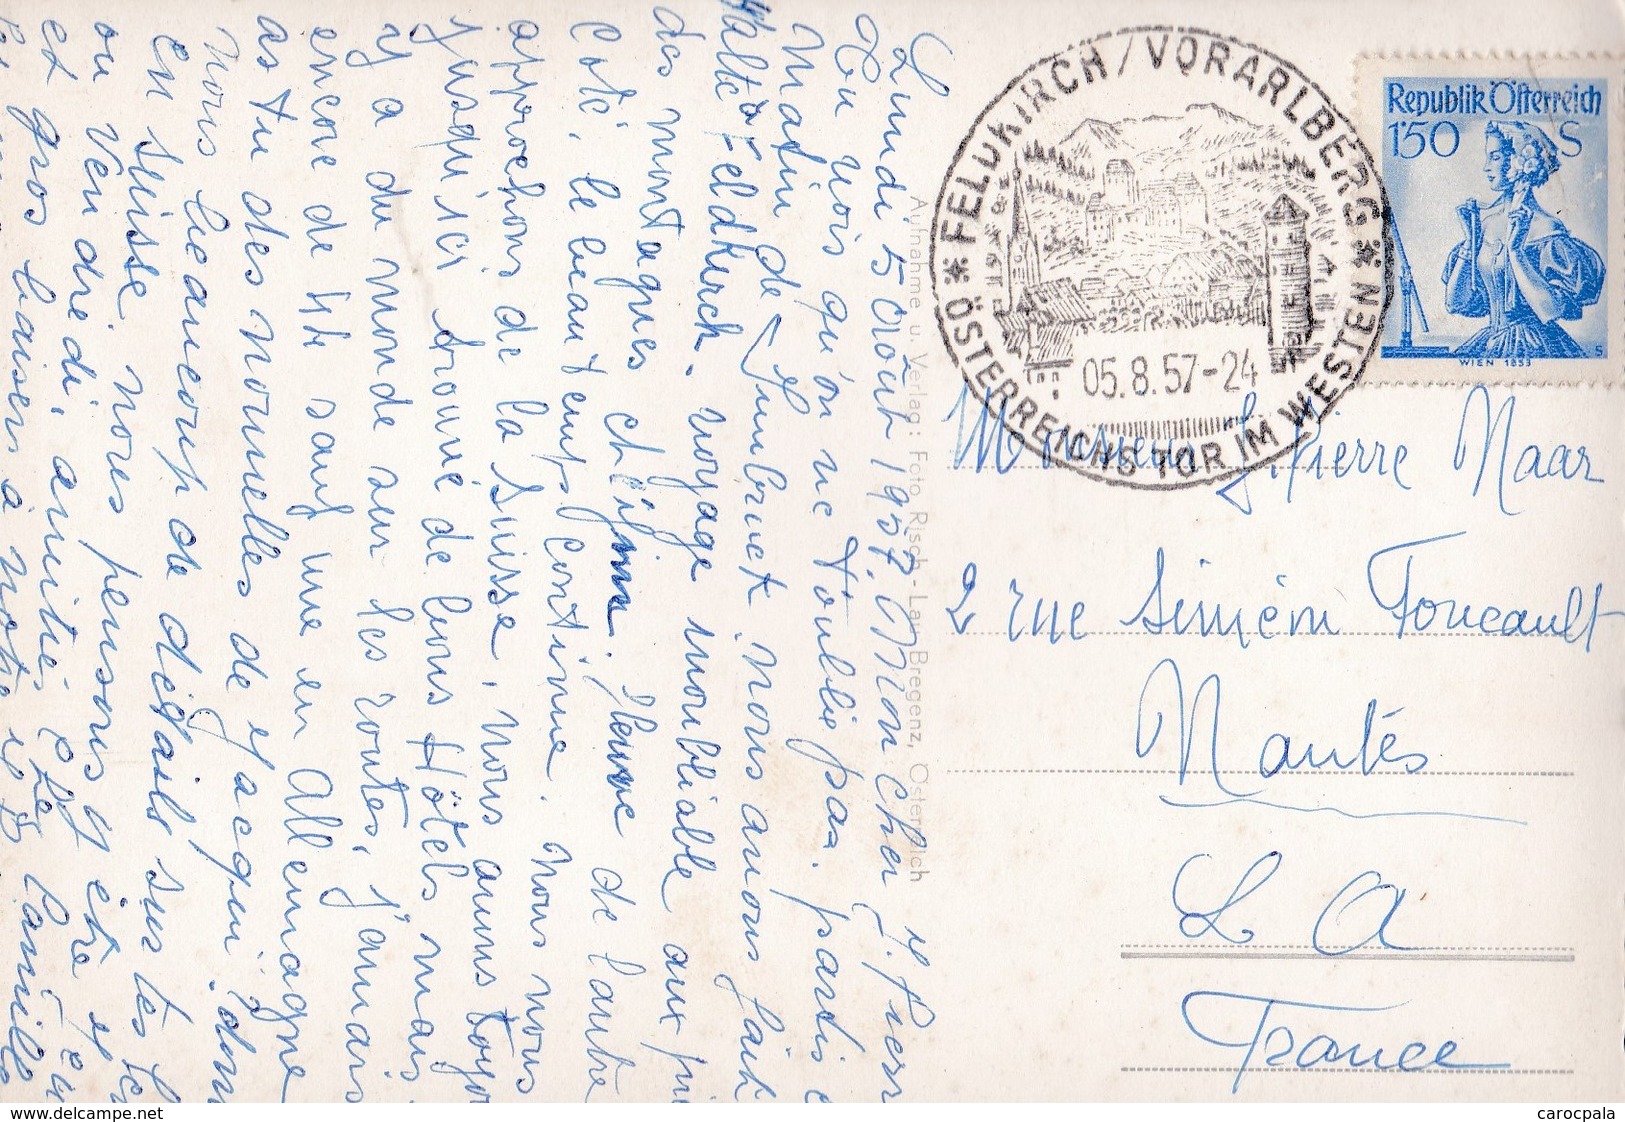 Lundi 5 Août 1957. Mon cher J. Pierr
Tu vois qu'on ne t'oublie pas. partis c
Matin de Innbruck nous avons fait
halte Feldkirch. voyage inoubliable aux pi
des montagnes et
Coté, le beau temps Continue. nous nous
approchons de la Suisse, nous avons toujo
Jusqu'ici trouvé de bons Hôtels mais
y a du monde sur les routes, j'amais
encore de sauf une en Allemagne
as tu des nouvelles de Jacqui. donn
Nous beaucoup de détails sur tes
En Suisse nous pensons y être
ou Vendredi, amitiés
et gros baisers à notre
FELDKIRCH / VORARLBERG
05.8.57-24
ÖSTERREICHS TOR IM WESTEN
Republik Österreich
1'50 S
WIEN 1853
Aufnahme u. Verlag: Foto Risch-Lau, Bregenz, Österreich
Monsieur J. Pierre Naar
2 rue Siméon Foucault
Nantes
L A
France
www.delcampe.net
carocpala